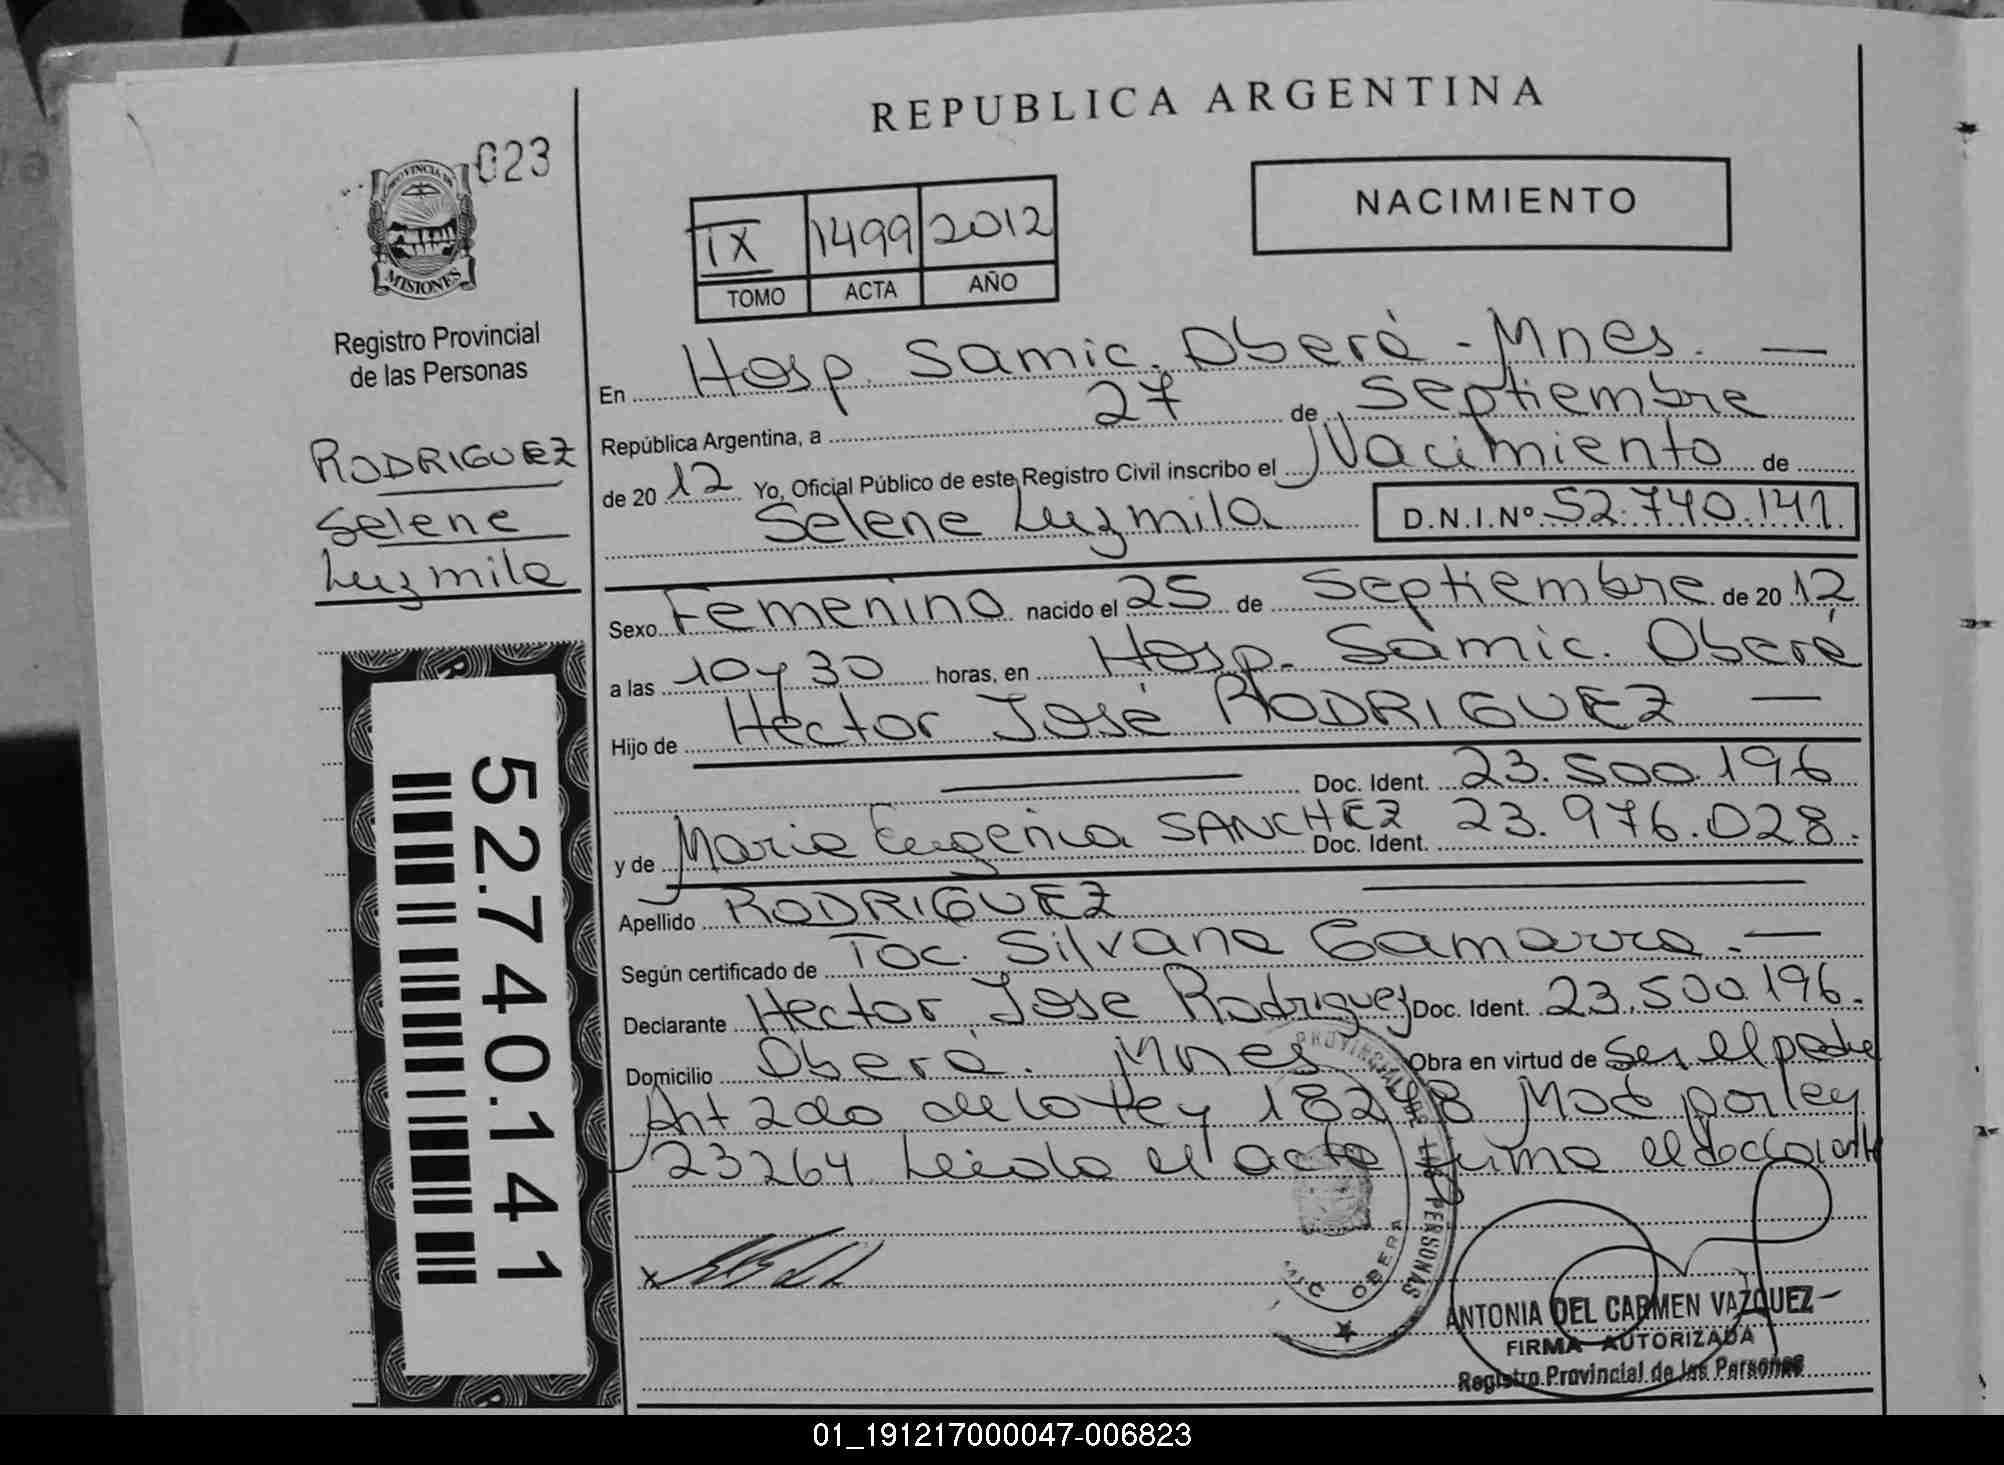 REPUBLICA ARGENTINA
023
PROVINCIA DE
MISIONES
Registro Provincial
de las Personas
RODRIGUEZ
Selene
Luzmila
52.740.141
NACIMIENTO
IX 1499 2012
TOMO ACTA AÑO
En Hosp. Samic. Oberá - Mnes. —
República Argentina, a 27 de Septiembre
de 2012 Yo, Oficial Público de este Registro Civil inscribo el Nacimiento de
Selene Luzmila D.N.I.Nº 52.740.141.
Sexo Femenino nacido el 25 de Septiembre de 2012
a las 10 y 30 horas, en Hosp. Samic. Oberá
Hijo de Héctor José RODRIGUEZ —
Doc. Ident. 23.500.196
y de Maria Eugenia SANCHEZ Doc. Ident. 23.976.028.
Apellido RODRIGUEZ
Según certificado de Toc. Silvana Gamarra. —
Declarante Hector Jose Rodriguez Doc. Ident. 23.500.196.
Domicilio Oberá. Mnes Obra en virtud de Ser el padre
Art 2do de la Ley 18248 Mod por ley
23264 Leida el acta firma el declarante
PROVINCIAL DE LAS PERSONAS
OBERA
ANTONIA DEL CARMEN VAZQUEZ
FIRMA AUTORIZADA
Registro Provincial de las Personas
01_191217000047-006823